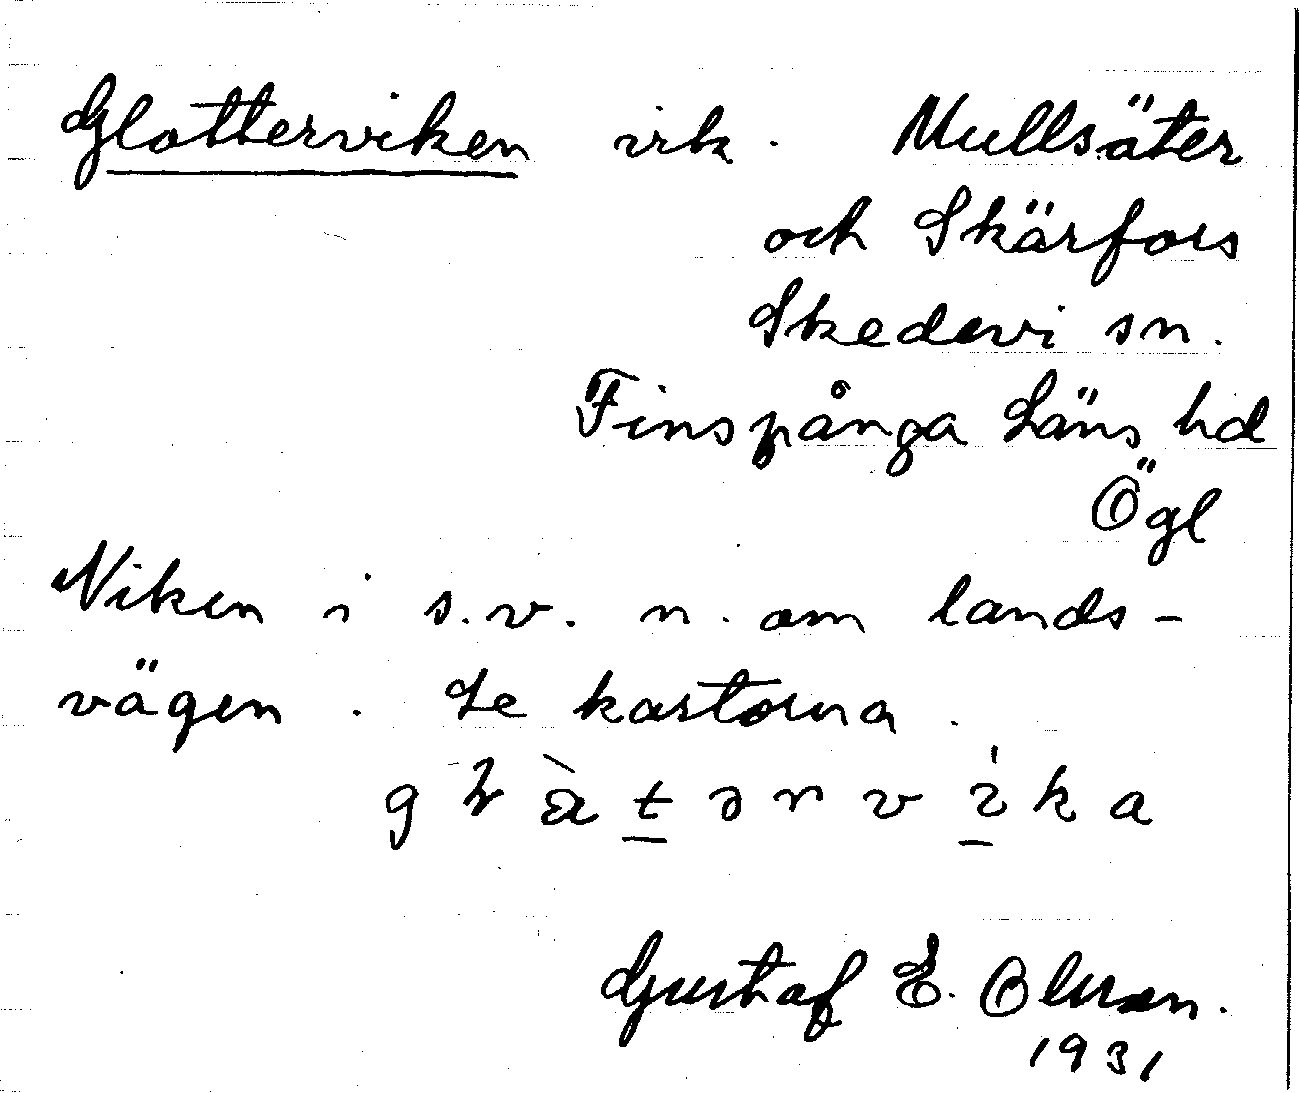 Glotterviken vik. Mullsäter
och Skärfors
Skedevi sn.
Finspånga Läns hd
Ögl
Viken i s.v. n. om lands-
vägen. Se kartorna.
Gustaf E. Olsson.
1931